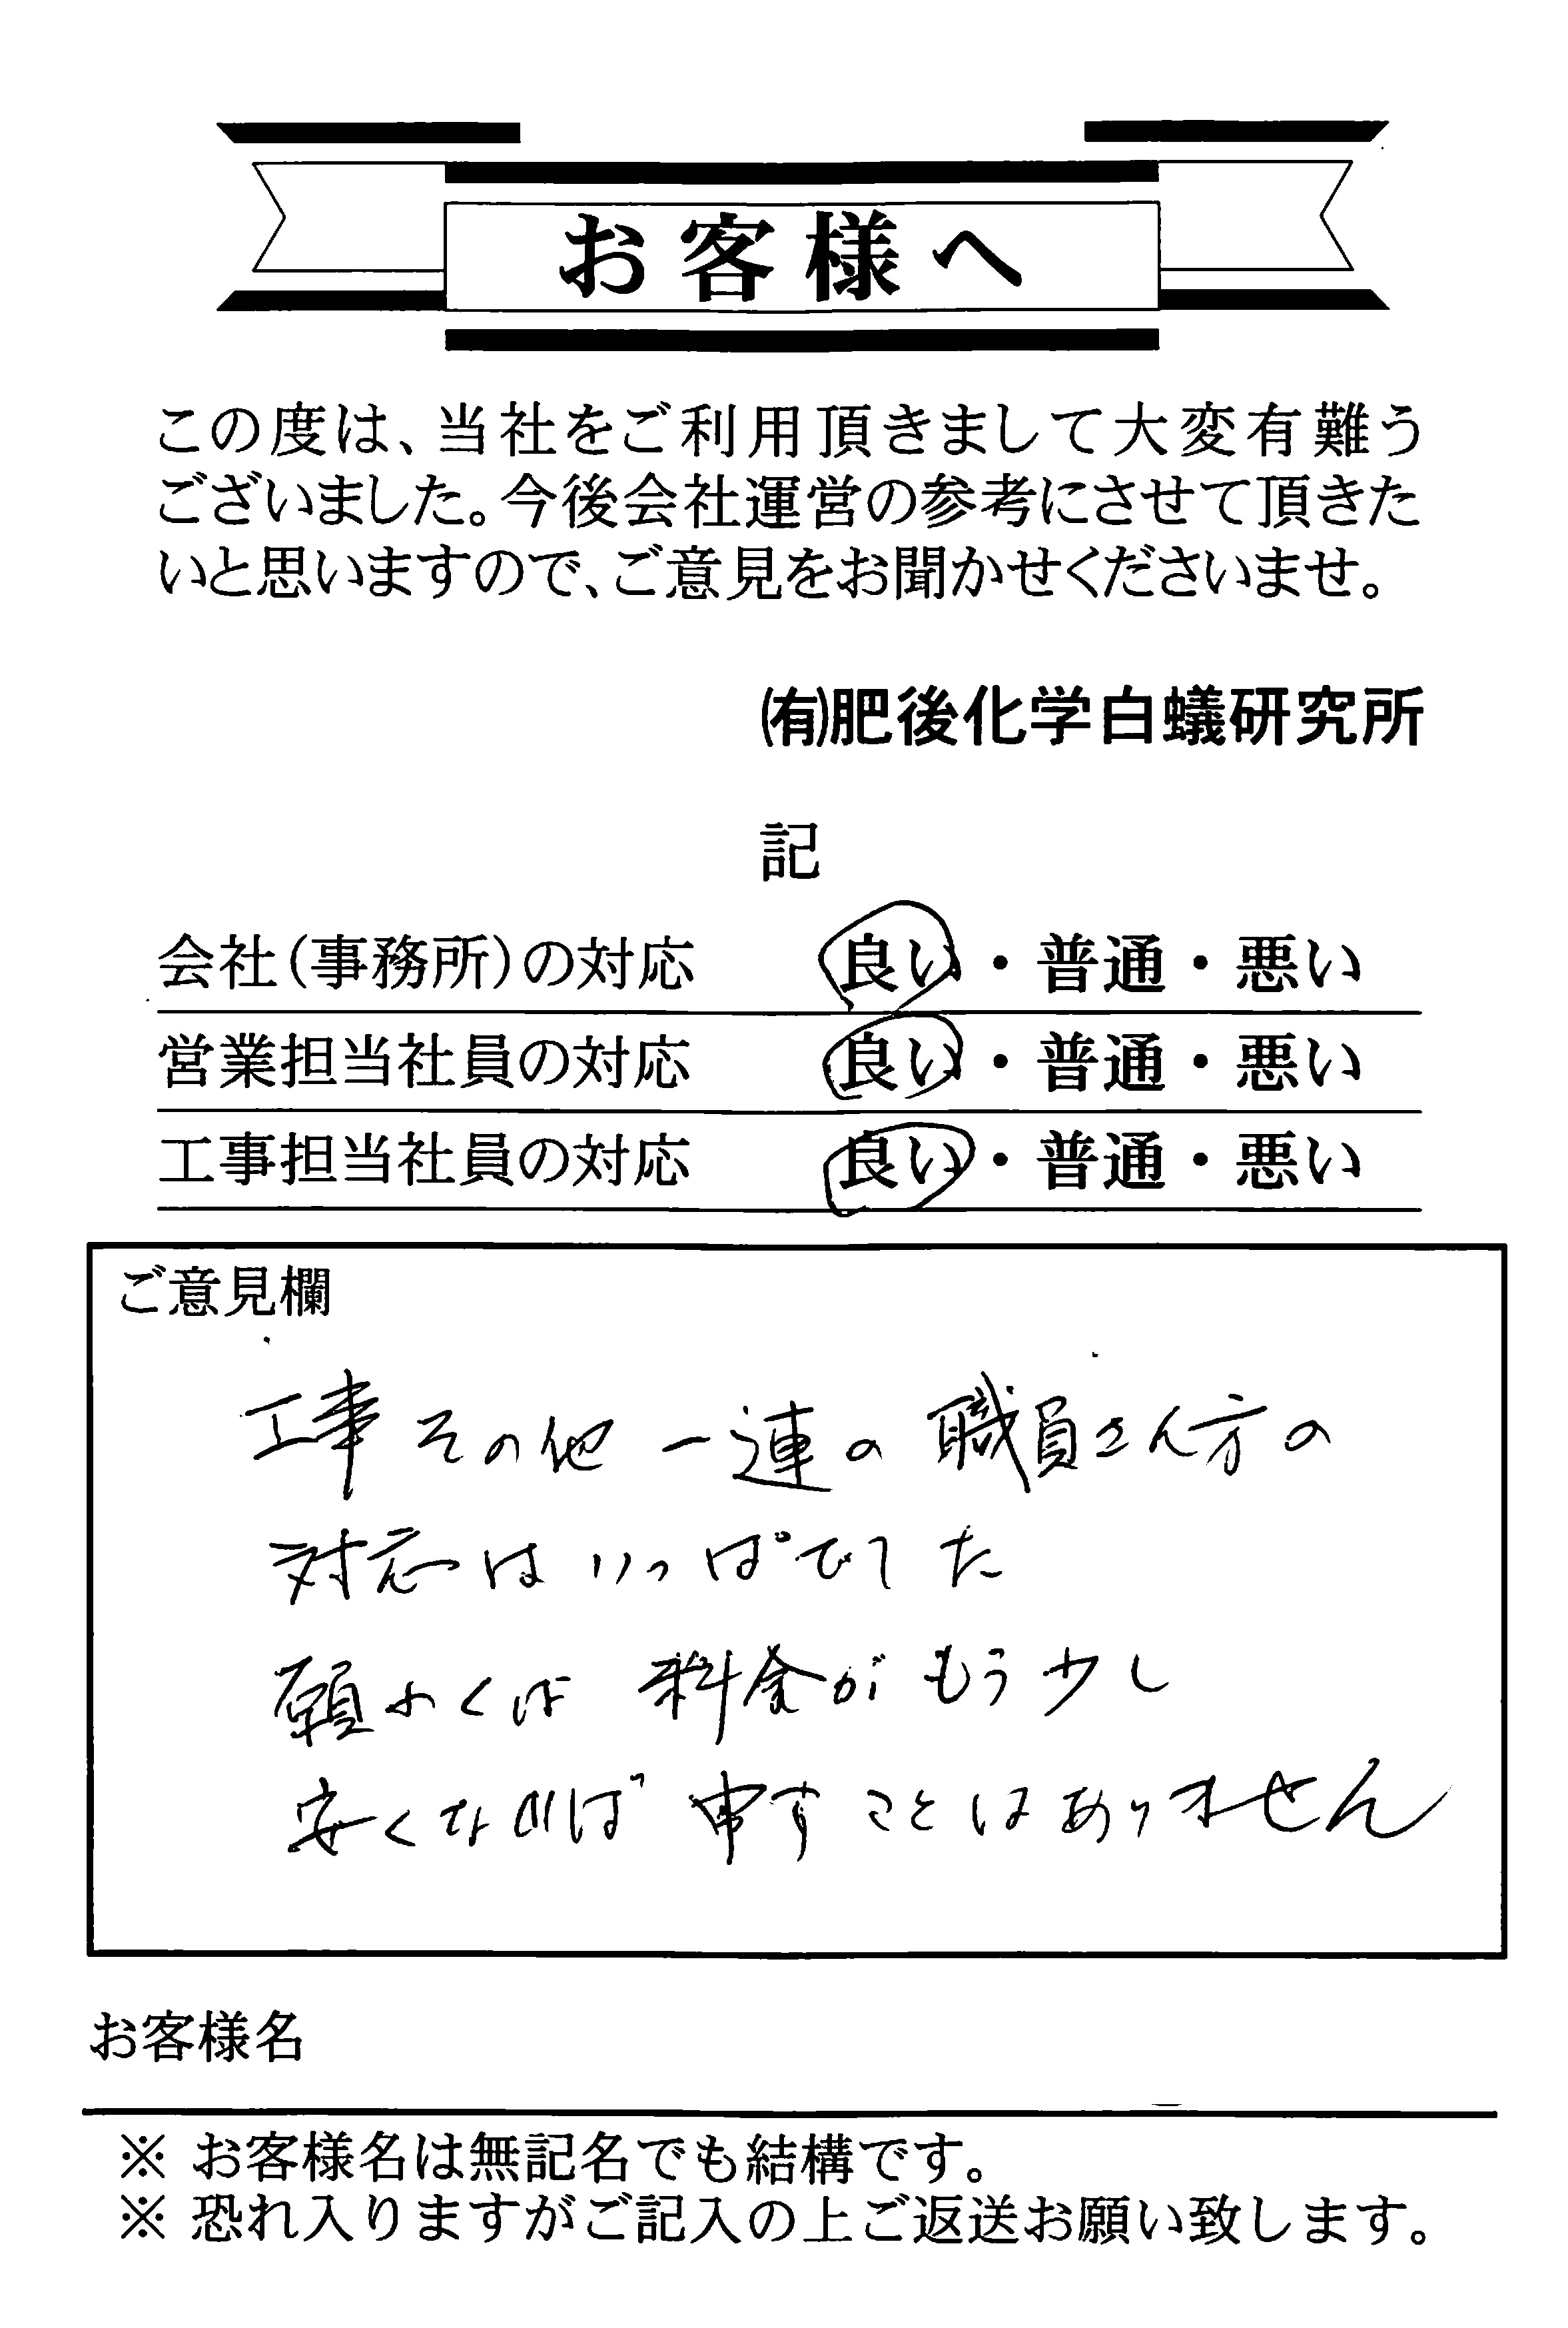 お客様へ
この度は、当社をご利用頂きまして大変有難う
ございました。今後会社運営の参考にさせて頂きた
いと思いますので、ご意見をお聞かせくださいませ。
㈲肥後化学白蟻研究所
記
会社(事務所)の対応 良い・普通・悪い
営業担当社員の対応 良い・普通・悪い
工事担当社員の対応 良い・普通・悪い
ご意見欄
工事その他一連の職員さん方の
対応はいっぱでした
願わくば料金がもう少し
安くなれば申すことはありません
お客様名
※ お客様名は無記名でも結構です。
※ 恐れ入りますがご記入の上ご返送お願い致します。